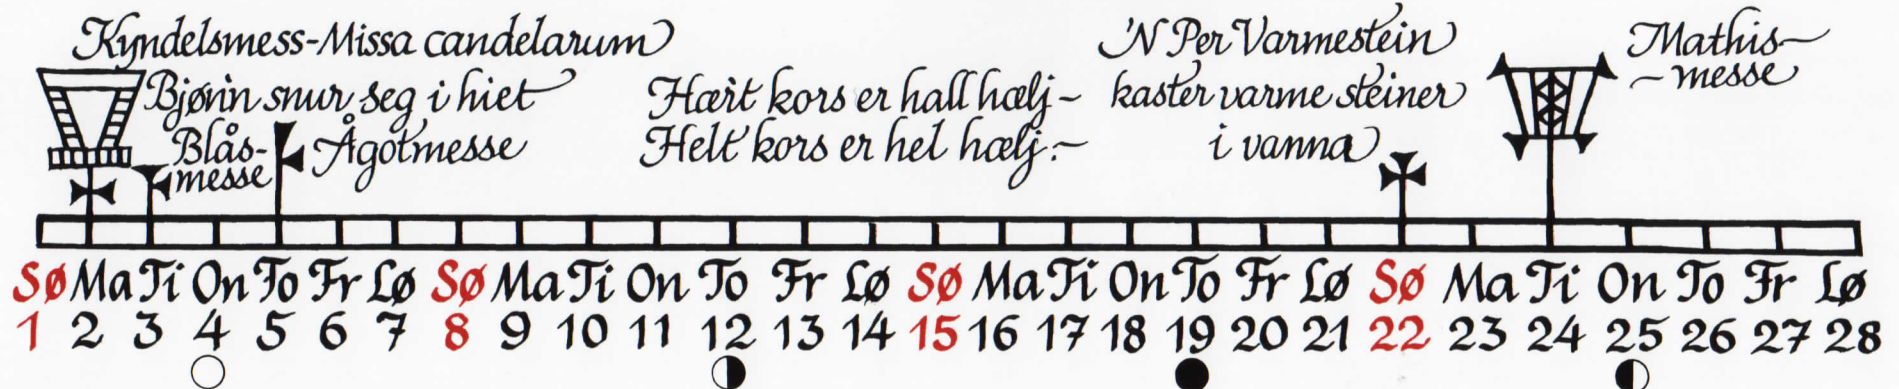 Kyndelsmess-Missa candelarum
Bjørin snur seg i hiet
Blås-
messe
Ågotmesse
Hært kors er hall hælj-
Helt kors er hel hælj:-
'N Per Varmestein
kaster varme steiner
i vanna
Mathis-
-messe
Sø Ma Ti On To Fr Lø Sø Ma Ti On To Fr Lø Sø Ma Ti On To Fr Lø Sø Ma Ti On To Fr Lø
1 2 3 4 5 6 7 8 9 10 11 12 13 14 15 16 17 18 19 20 21 22 23 24 25 26 27 28